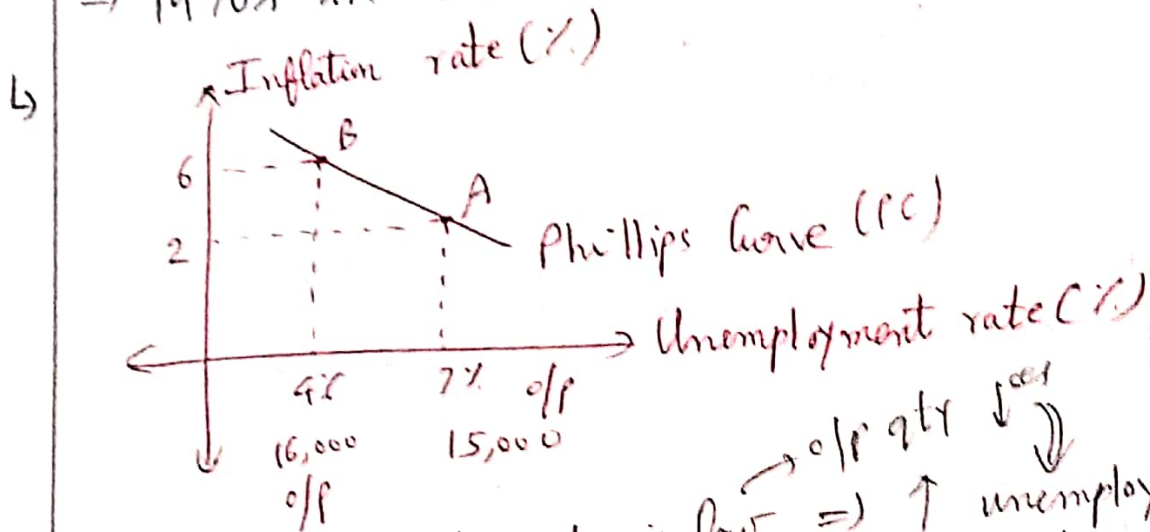 Inflation rate (%)
B
6
A
2
Phillips Curve (PC)
Unemployment rate (%)
4% 7% o/p
16,000 15,000
o/p
o/p qty ↓
⇒ ↑ unemploy